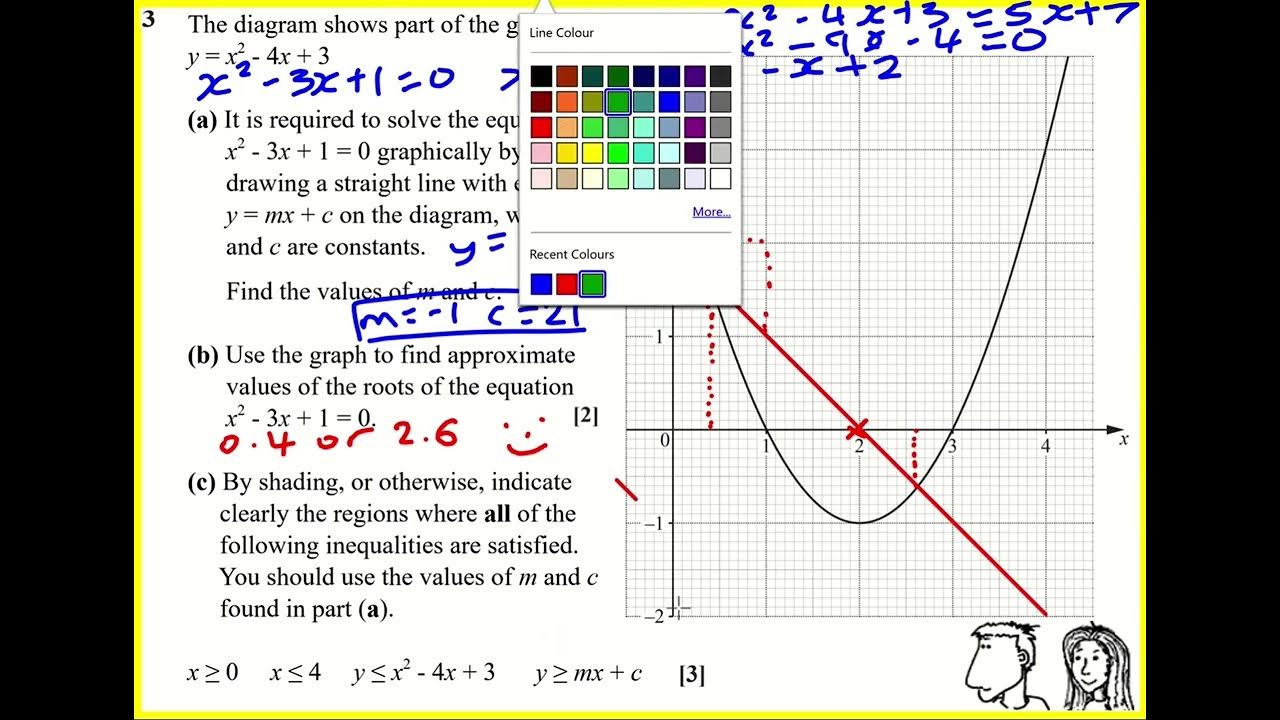 3 The diagram shows part of the g
y = x² - 4x + 3
x² - 3x + 1 = 0
x² - 4x + 3 = 5x + 7
x² - 9x - 4 = 0
- x + 2
(a) It is required to solve the equ
x² - 3x + 1 = 0 graphically by
drawing a straight line with
y = mx + c on the diagram, w
and c are constants.
y =
Find the values of m and c.
m = -1 c = 2
(b) Use the graph to find approximate
values of the roots of the equation
x² - 3x + 1 = 0. [2]
0.4 or 2.6
(c) By shading, or otherwise, indicate
clearly the regions where all of the
following inequalities are satisfied.
You should use the values of m and c
found in part (a).
x ≥ 0 x ≤ 4 y ≤ x² - 4x + 3 y ≥ mx + c [3]
Line Colour
More...
Recent Colours
1
0 1 2 3 4 x
-1
-2